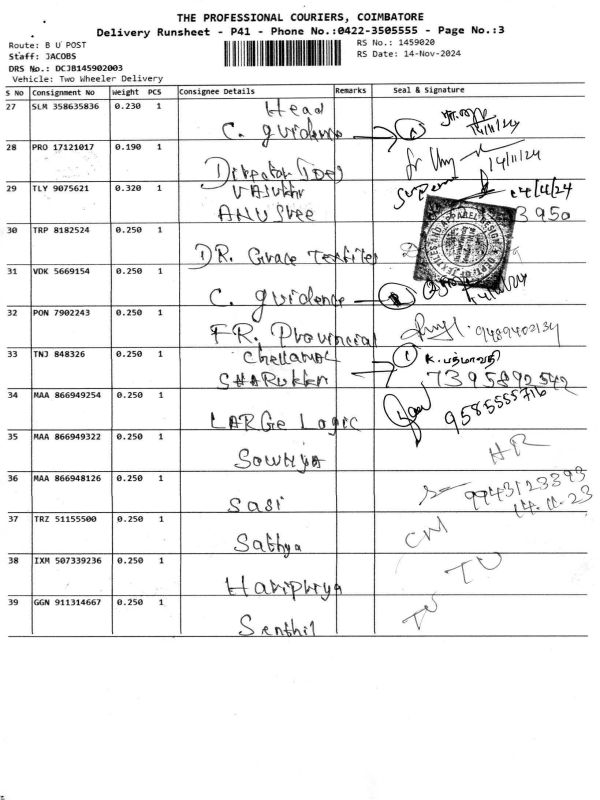 THE PROFESSIONAL COURIERS, COIMBATORE
Delivery Runsheet - P41 - Phone No.:0422-3505555 - Page No.:3
Route: B U POST
RS No.: 1459020
Staff: JACOBS
RS Date: 14-Nov-2024
DRS No.: DCJB145902003
Vehicle: Two Wheeler Delivery
S No Consignment No Weight PCS Consignee Details Remarks Seal & Signature
27 SLM 358635836 0.230 1 Head
C. guidence 14/11/24
28 PRO 17121017 0.190 1
Director 14/11/24
29 TLY 9075621 0.320 1 14/11/24
ANUSree 3950
30 TRP 8182524 0.250 1
DR. Grace Textiles
31 VDK 5669154 0.250 1
C. guidence 14/11/24
32 PON 7902243 0.250 1
FR. Provincial 9489402134
33 TNJ 848326 0.250 1 Chellamal க. பத்மாவதி
SHARukkn 7395892542
34 MAA 866949254 0.250 1
LARGe Logic 9585555716
35 MAA 866949322 0.250 1
Sowmya HR
36 MAA 866948126 0.250 1 9943123393
Sasi 14-11-23
37 TRZ 51155500 0.250 1
Sathya CM
38 IXM 507339236 0.250 1 TU
Haripriya
39 GGN 911314667 0.250 1 TU
Senthil